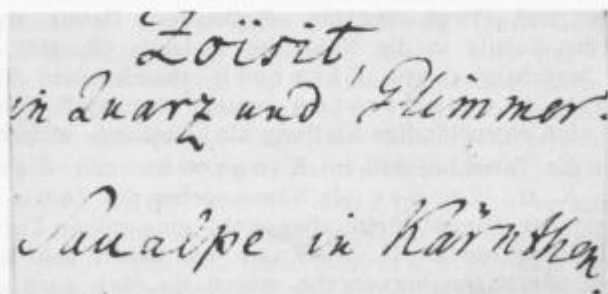 Zoisit,
in Quarz und Glimmer.
Saualpe in Kärnthen